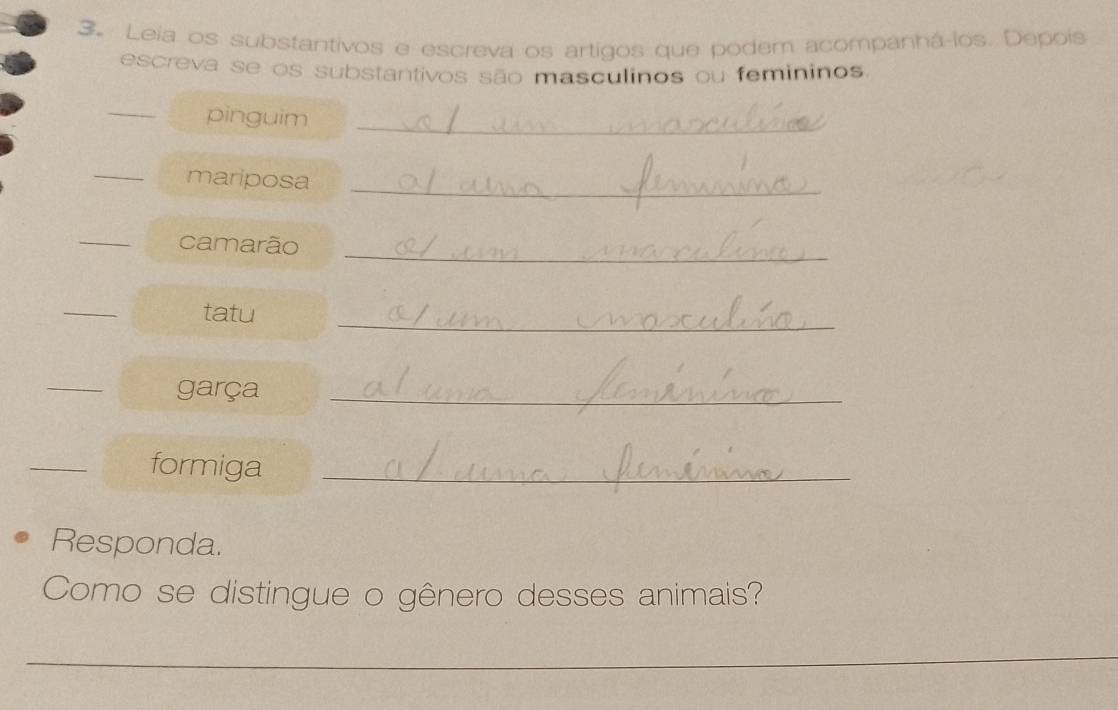 3. Leia os substantivos e escreva os artigos que podem acompanhá-los. Depois
escreva se os substantivos são masculinos ou femininos.
____ pinguim o/ um masculino
____ mariposa a/ uma feminino
____ camarão o/ um masculino
____ tatu o/ um masculino
____ garça a/ uma feminino
____ formiga a/ uma feminino
• Responda.
Como se distingue o gênero desses animais?